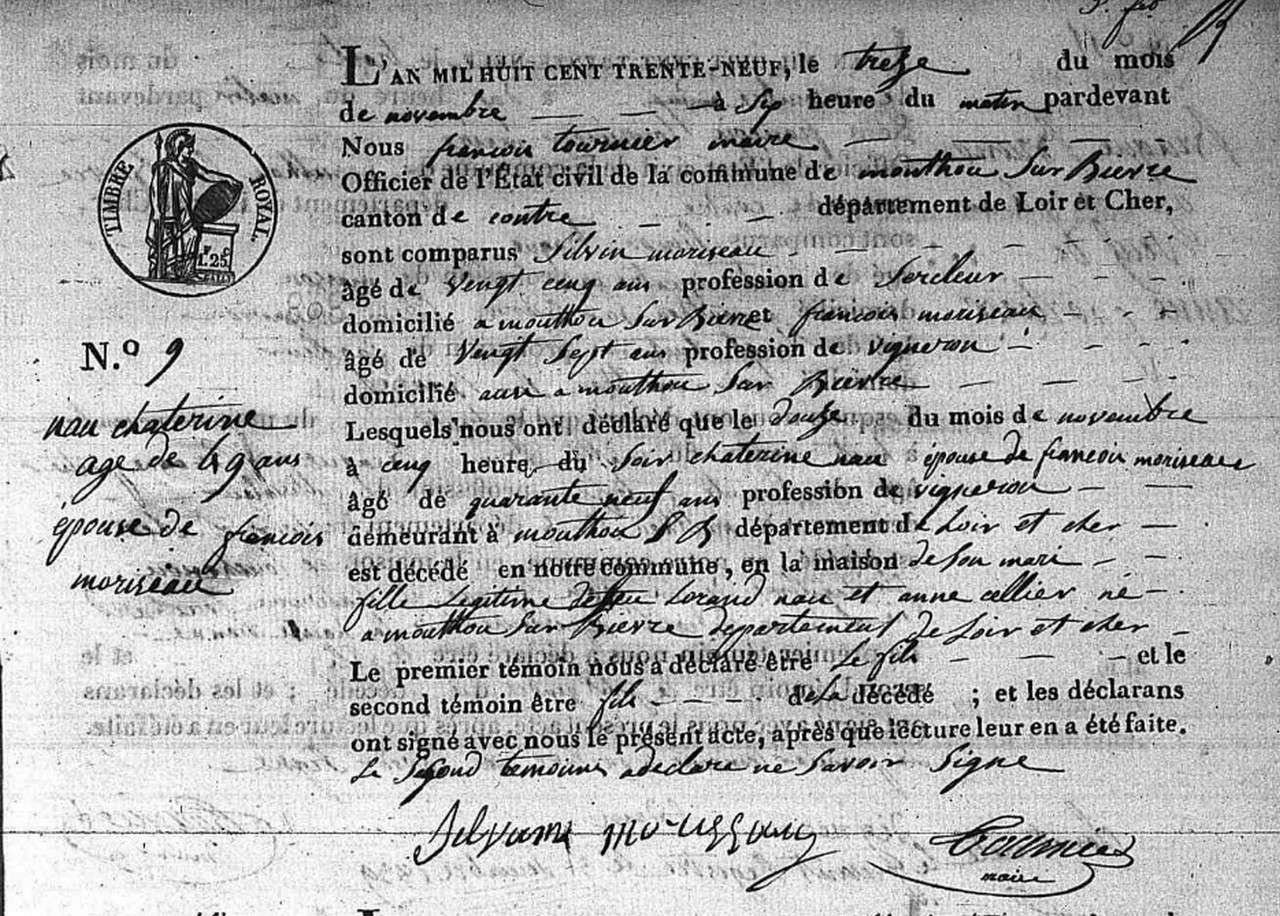 L'AN MIL HUIT CENT TRENTE-NEUF, le treze du mois
de novembre à sip heure du matin pardevant
Nous françois tournier maire
Officier de l'État civil de la commune de mouthou Sur Bievre
canton de contre département de Loir et Cher,
sont comparus Silvin moriseau
âgé de Vengt cenq ans profession de Sercleur
domicilié a mouthou Sur Bievre et françois moriseau
âgé de Vengt Sept ans profession de vigneron
domicilié ausi a mouthou Sur Bievre
Lesquels nous ont déclaré que le douze du mois de novembre
à cenq heure du Soir chaterine nau épouse de françois moriseau
âgé de quarante neuf ans profession de vigneron
demeurant à mouthou S B département de Loir et cher
est décédé en notre commune, en la maison de Son mari
fille Legitime de feu Lorand nau et anne cellier né
a mouthou Sur Bievre departement de Loir et cher
Le premier témoin nous a déclaré être Le fils et le
second témoin être fils de la décédé ; et les déclarans
ont signé avec nous le présent acte, après que lecture leur en a été faite.
Le Segond temouns a declare ne Savoir Signe
Tournier
maire
TIMBRE ROYAL.
1F.25
N.º 9
nau chaterine
age de 49 ans
épouse de françois
moriseau